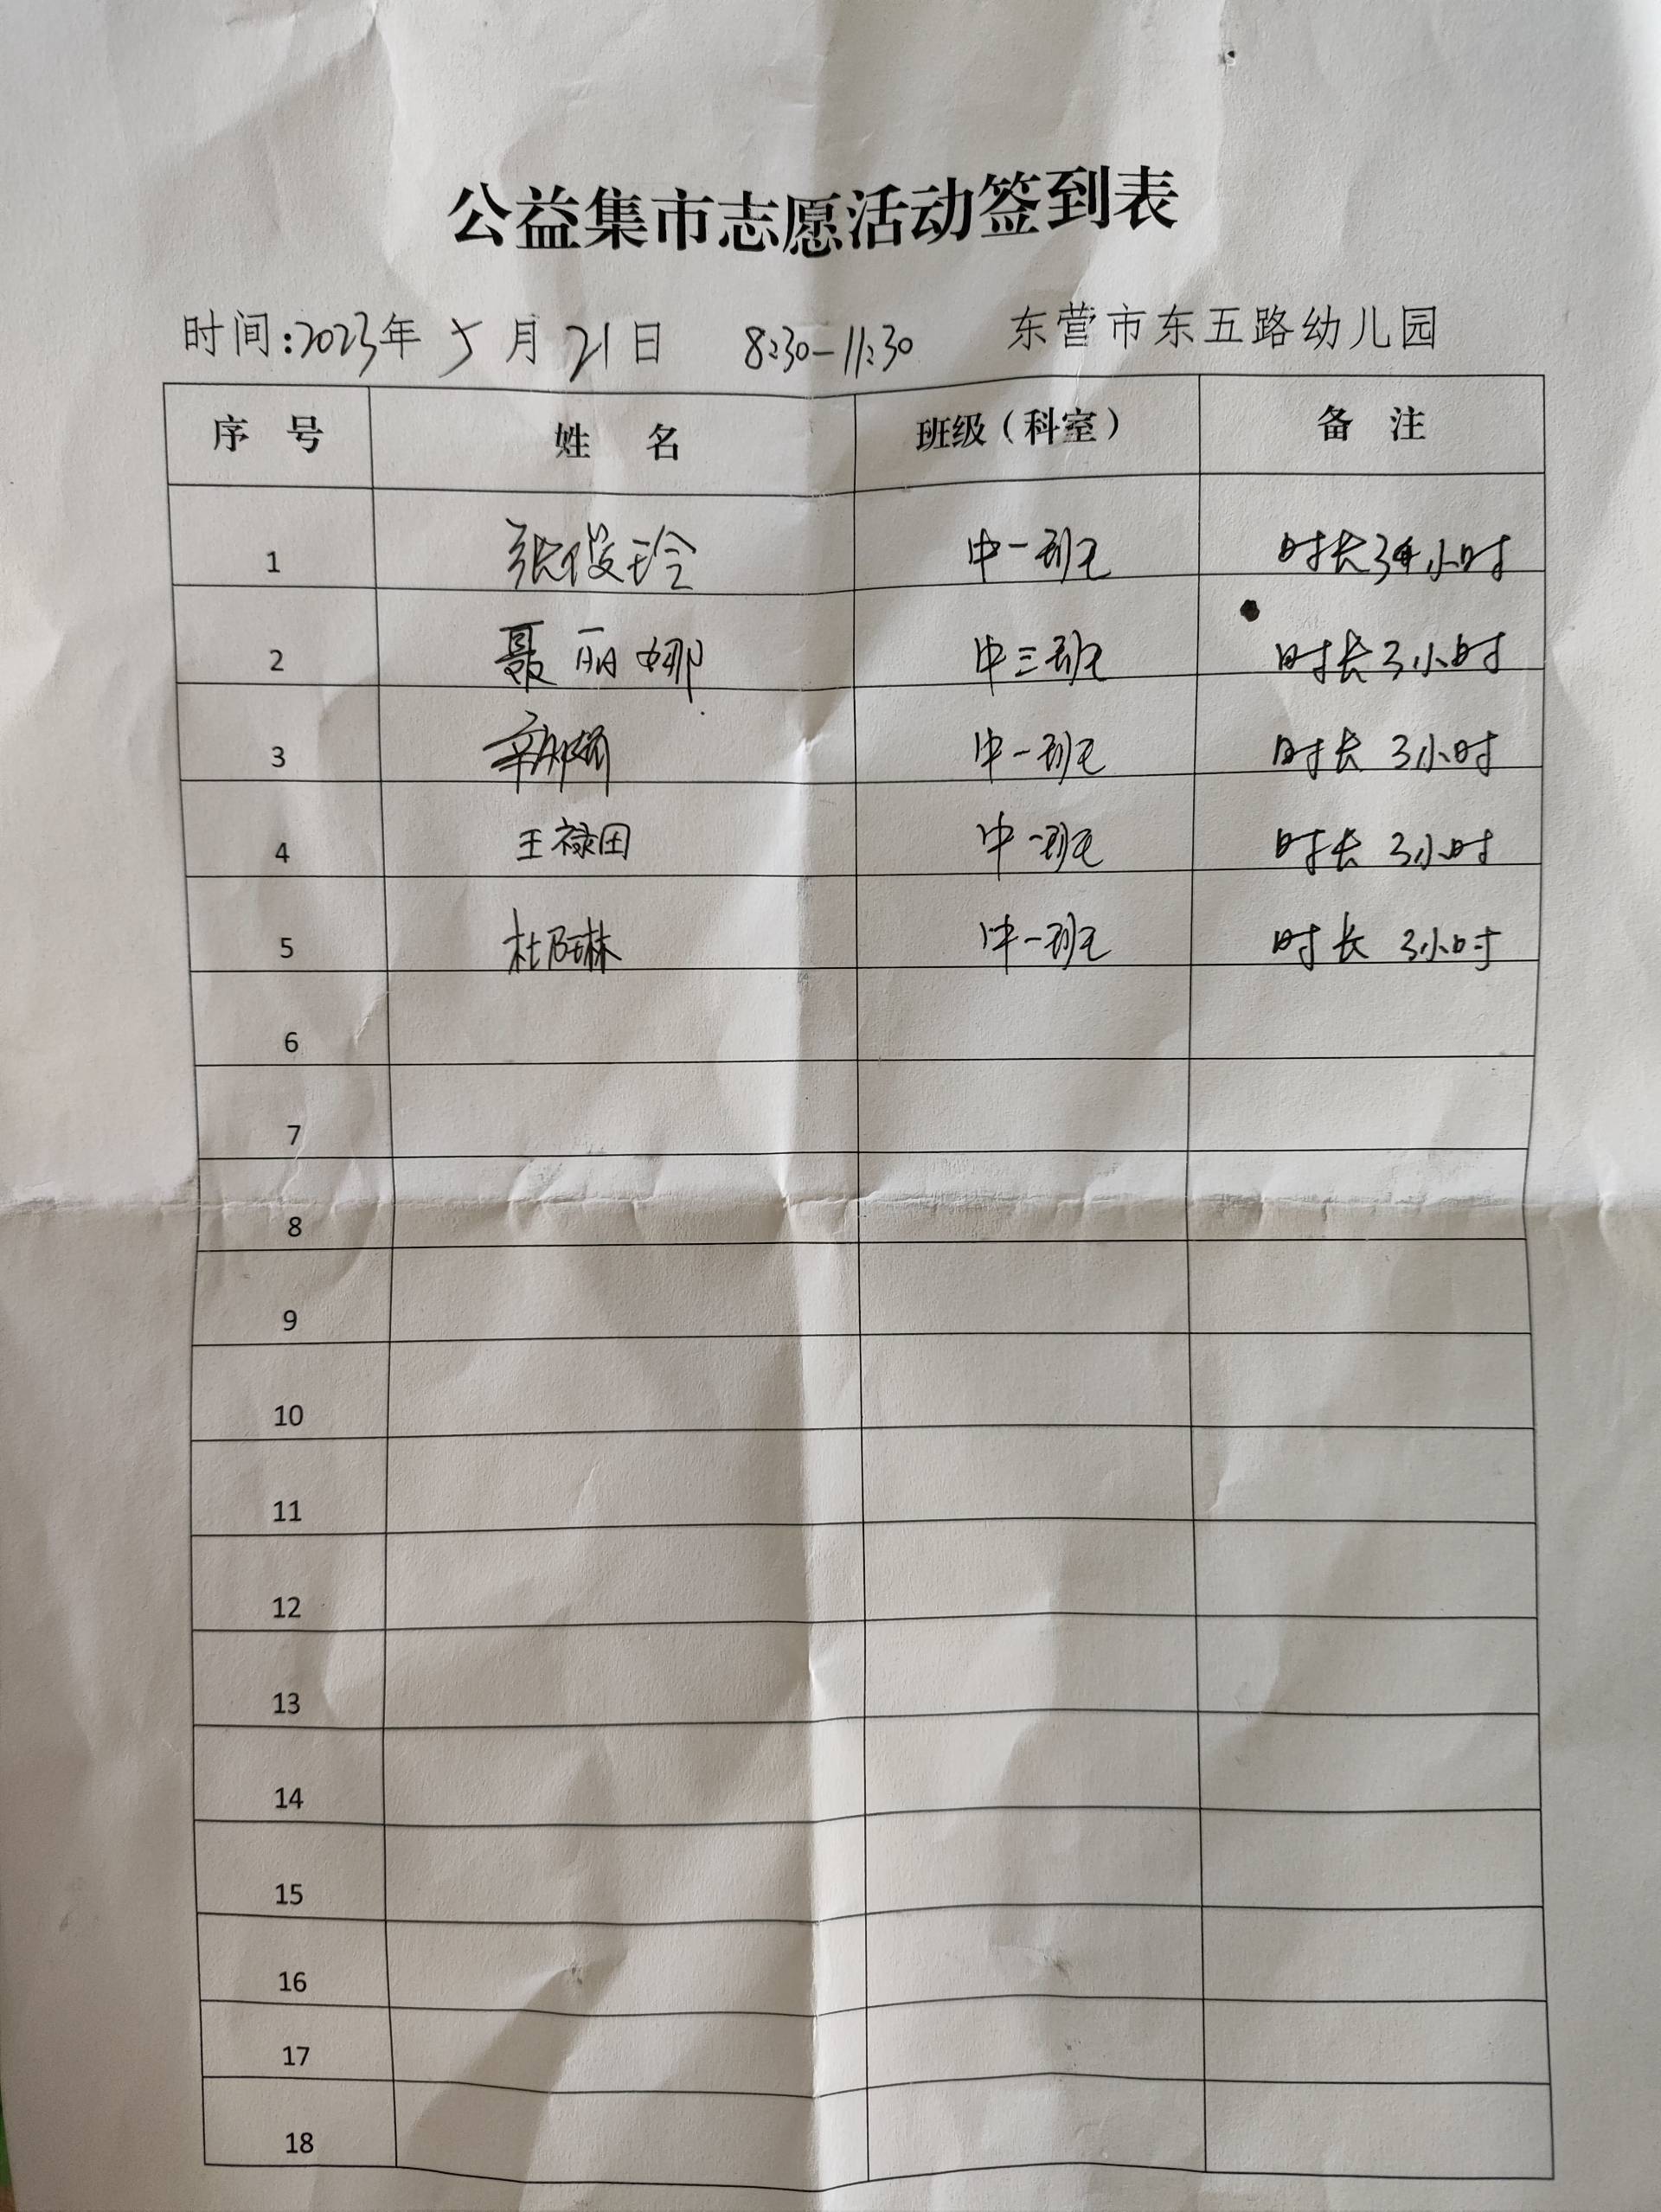 公益集市志愿活动签到表
时间:2023年 5 月 21 日 8:30-11:30 东营市东五路幼儿园
序 号 姓 名 班级（科室） 备 注
1 张俊玲 中一班 时长3小时
2 聂丽娜 中三班 时长3小时
3 中一班 时长 3小时
4 王禄田 中一班 时长 3小时
5 杜乃琳 中一班 时长 3小时
6
7
8
9
10
11
12
13
14
15
16
17
18